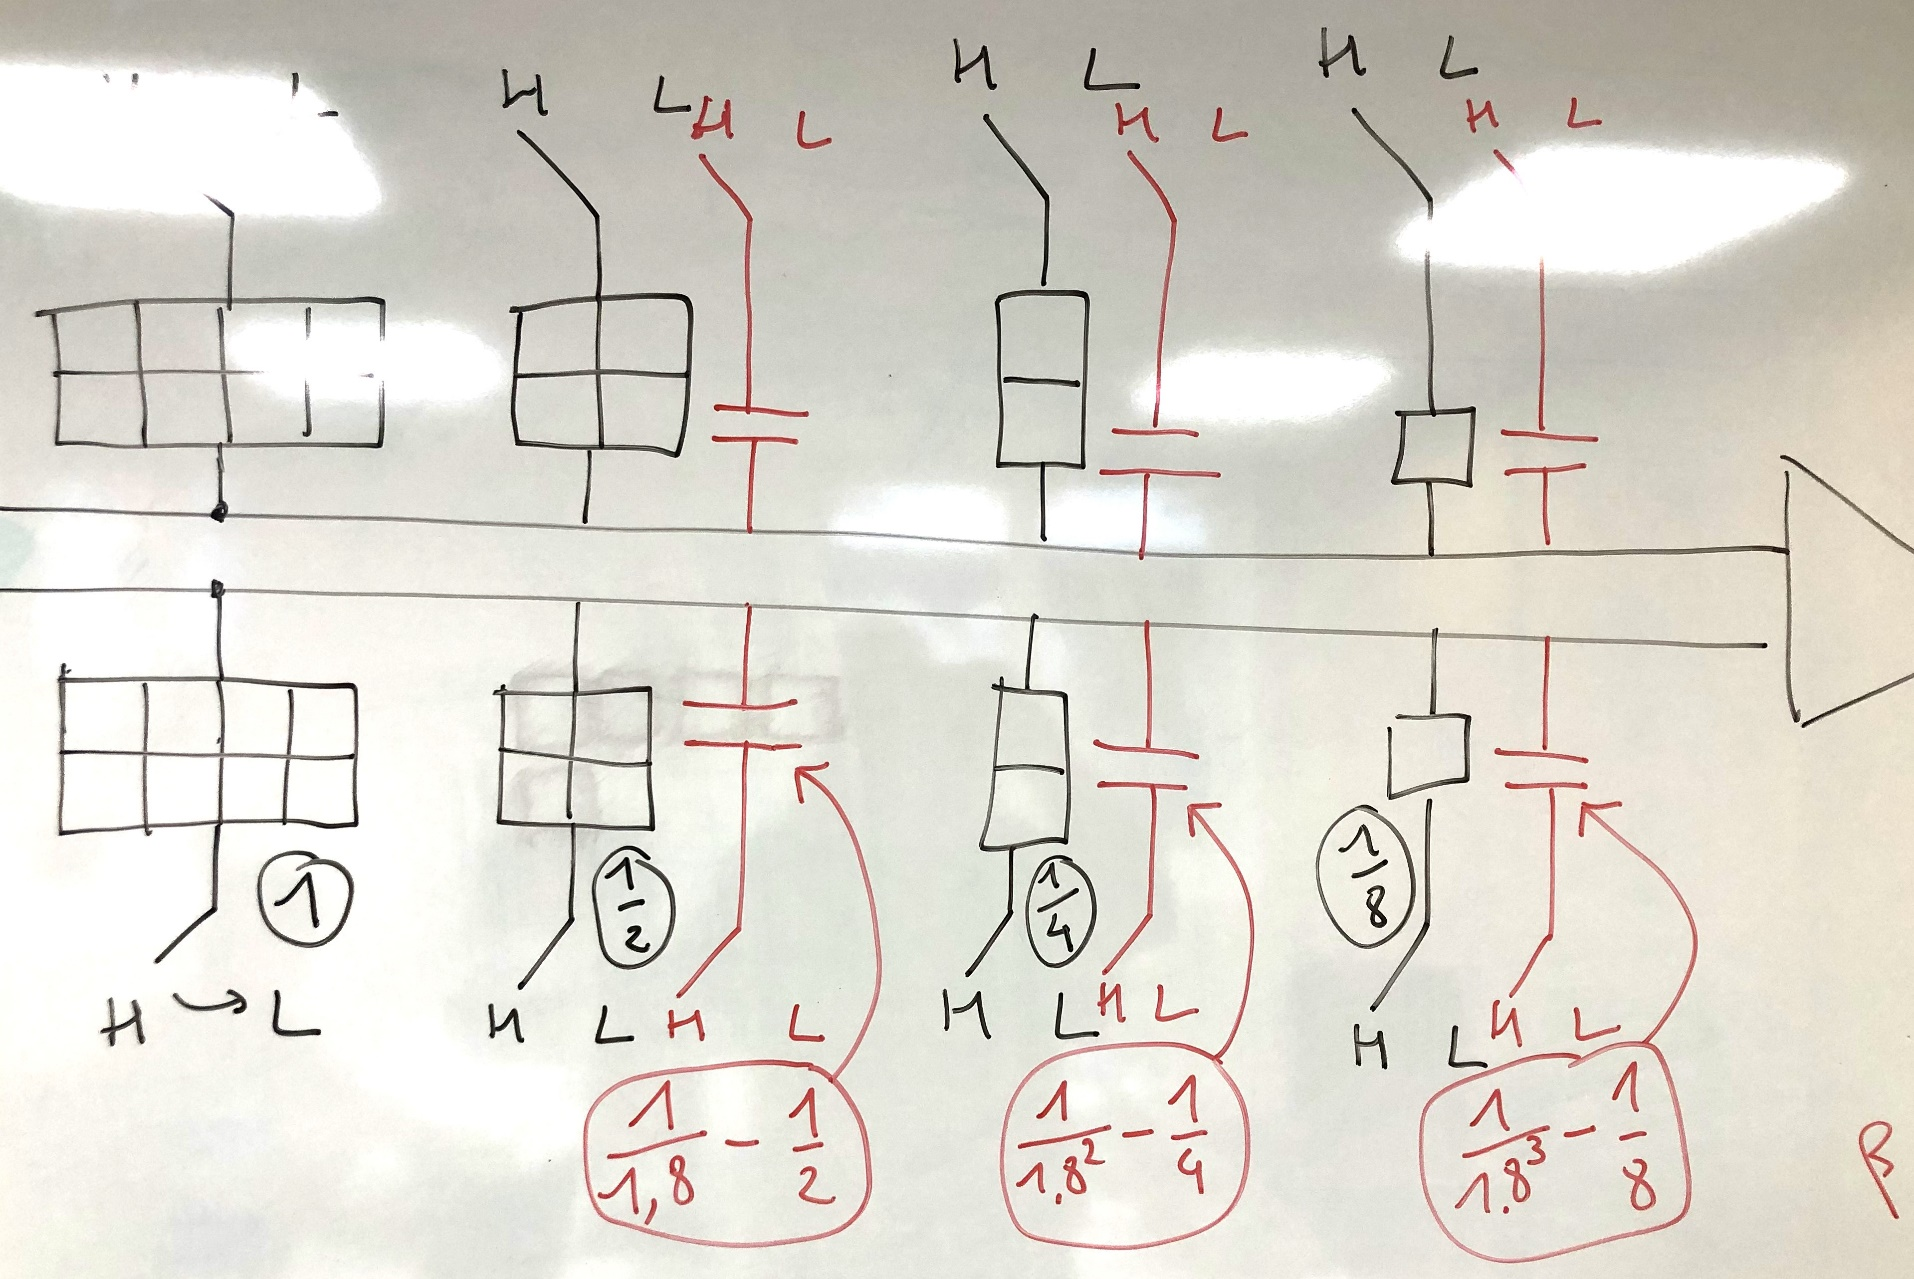 H L H L H L
H L H L H L
1
1/2
1/4
1/8
H → L H L H L H L H L H L H L
1/1,8 - 1/2
1/1,8² - 1/4
1/1.8³ - 1/8
β